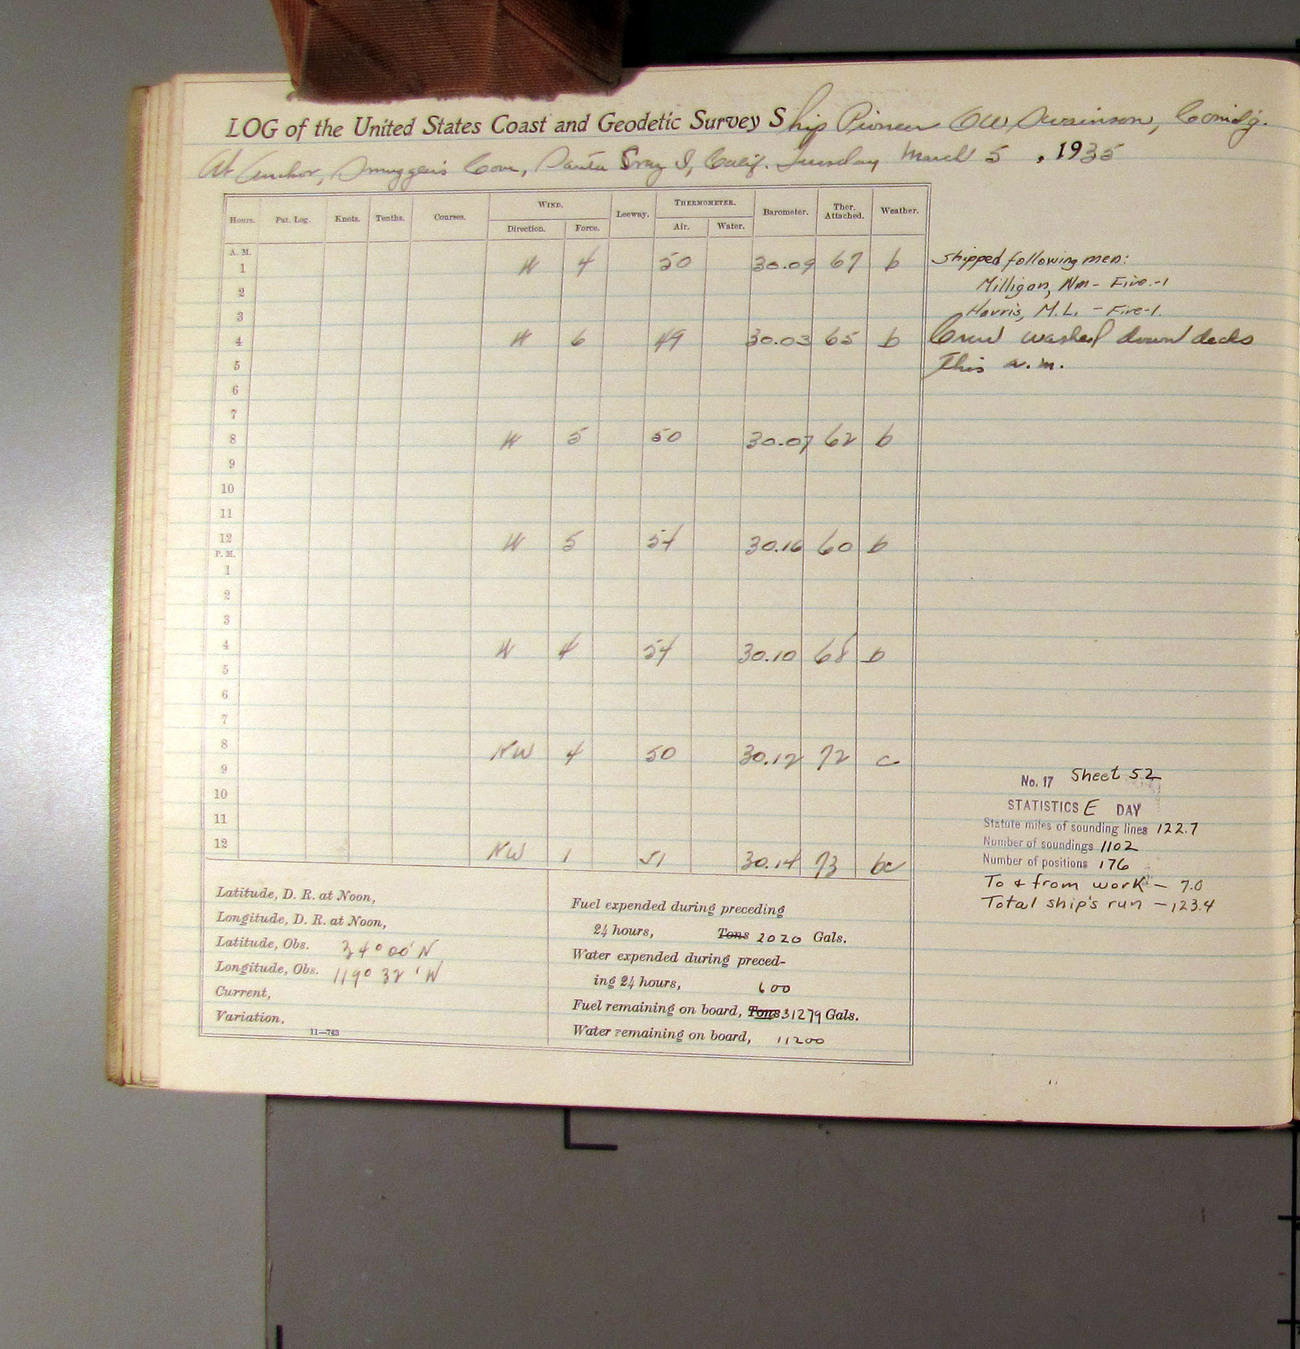 LOG of the United States Coast and Geodetic Survey Ship Pioneer O W Swainson, Comd'g.
At Anchor, Smuggler's Cove, Santa Cruz I, Calif. Tuesday March 5, 1935
Hours. Pat. Log. Knots. Tenths. Courses. WIND. Direction. Force. Leeway. THERMOMETER. Air. Water. Barometer. Ther. Attached. Weather.
A. M.
1 W 4 50 30.09 67 b Shipped following men:
2 Milligan, Wm - Fire.-1
3 Harris, M.L. - Fire-1.
4 W 6 49 30.03 65 b Crew washed down decks
5 This a.m.
6
7
8 W 5 50 30.07 62 b
9
10
11
12 W 5 54 30.16 60 b
P. M.
1
2
3
4 W 4 54 30.10 68 b
5
6
7
8 NW 4 50 30.12 72 c
9
10
11
12 NW 1 51 30.14 73 bc
No. 17 Sheet 52
STATISTICS E DAY
Statute miles of sounding lines 122.7
Number of soundings 1102
Number of positions 176
To & from work - 7.0
Total ship's run - 123.4
Latitude, D. R. at Noon,
Longitude, D. R. at Noon,
Latitude, Obs. 34° 00' N
Longitude, Obs. 119° 32' W
Current,
Variation,
11—763
Fuel expended during preceding
24 hours, Tons 2020 Gals.
Water expended during preced-
ing 24 hours, 600
Fuel remaining on board, Tons 31279 Gals.
Water remaining on board, 11200